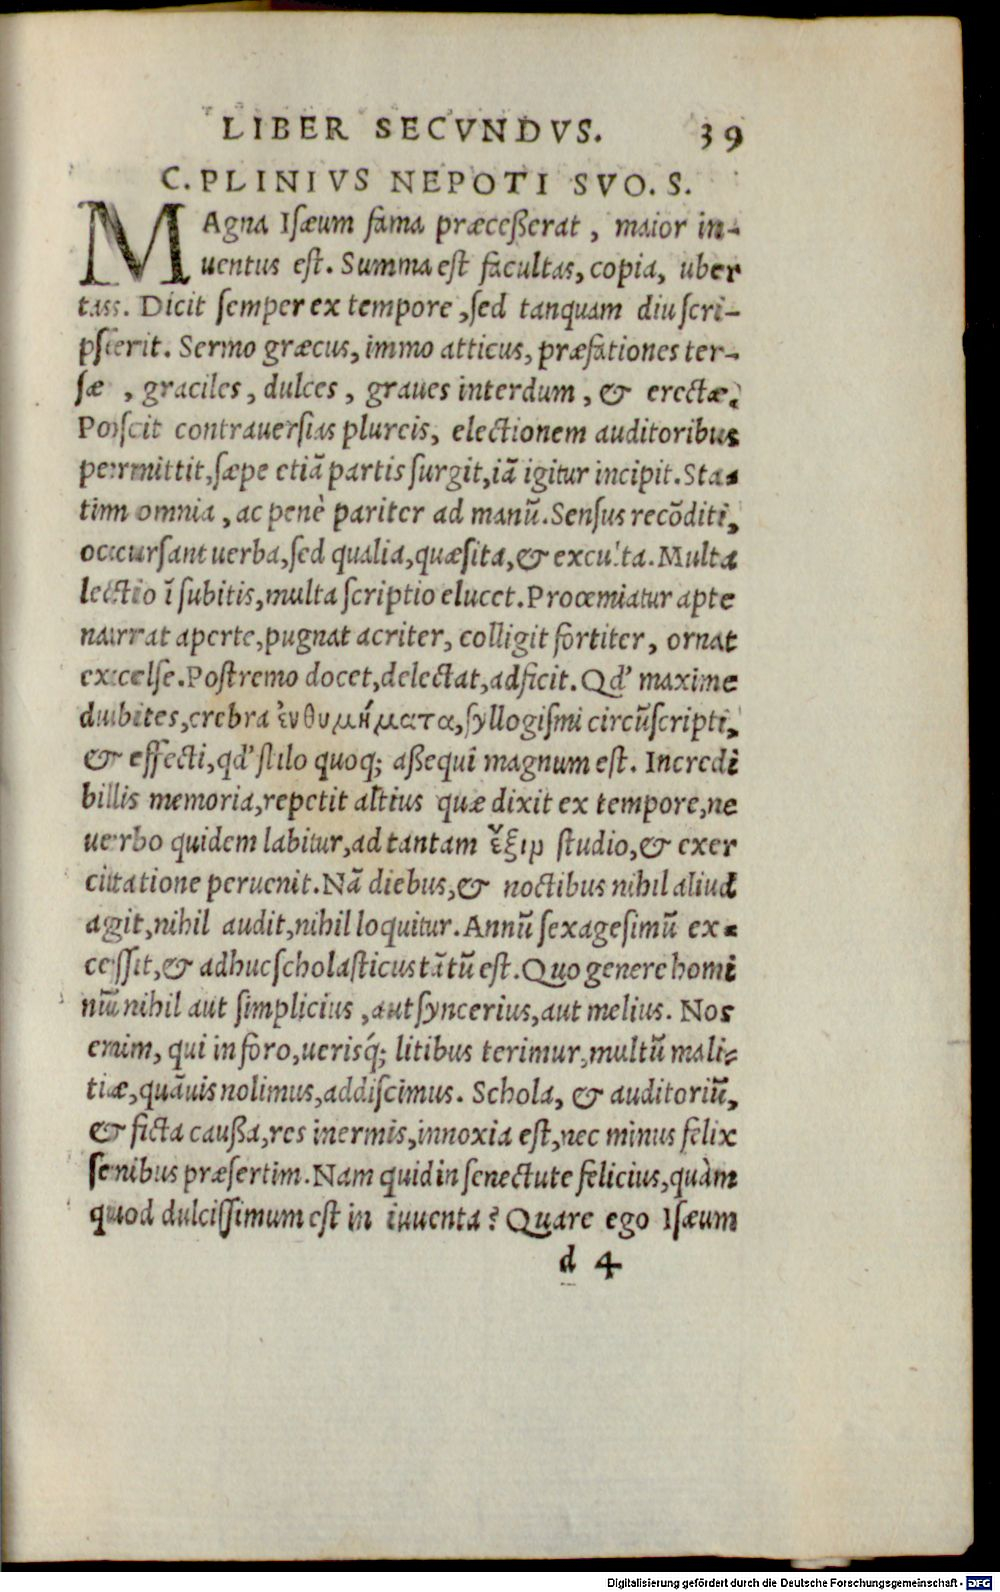 LIBER SECVNDVS. 39
C. PLINIVS NEPOTI SVO. S.
MAgna Isæum fama præceßerat, maior in-
uentus est. Summa est facultas, copia, uber
tas. Dicit semper ex tempore, sed tanquam diu scri-
pserit. Sermo græcus, immo atticus, præfationes ter-
sæ, graciles, dulces, graues interdum, & erectæ.
Poscit contrauersias plureis, electionem auditoribus
permittit, sæpe etiã partis surgit, iã igitur incipit. Sta-
tim omnia, ac penè pariter ad manũ. Sensus recõditi,
occursant uerba, sed qualia, quæsita, & exculta. Multa
lectio ĩ subitis, multa scriptio elucet. Proœmiatur apte
narrat aperte, pugnat acriter, colligit fortiter, ornat
excelse. Postremo docet, delectat, adficit. Qd' maxime
dubites, crebra ἐνθυμήματα, syllogismi circũscripti,
& effecti, qd' stilo quoq; aßequi magnum est. Incredi
bilis memoria, repetit altius quæ dixit ex tempore, ne
uerbo quidem labitur, ad tantam ἕξιν studio, & exer
citatione peruenit. Nã diebus, & noctibus nihil aliud
agit, nihil audit, nihil loquitur. Annũ sexagesimũ ex-
cessit, & adhuc scholasticus tãtũ est. Quo genere homi
nũ nihil aut simplicius, aut syncerius, aut melius. Nos
enim, qui in foro, uerisq́; litibus terimur, multũ mali-
tiæ, quãuis nolimus, addiscimus. Schola, & auditoriũ,
& ficta caußa, res inermis, innoxia est, nec minus felix
senibus præsertim. Nam quid in senectute felicius, quàm
quod dulcissimum est in iuuenta? Quare ego Isæum
d 4
Digitalisierung gefördert durch die Deutsche Forschungsgemeinschaft - DFG